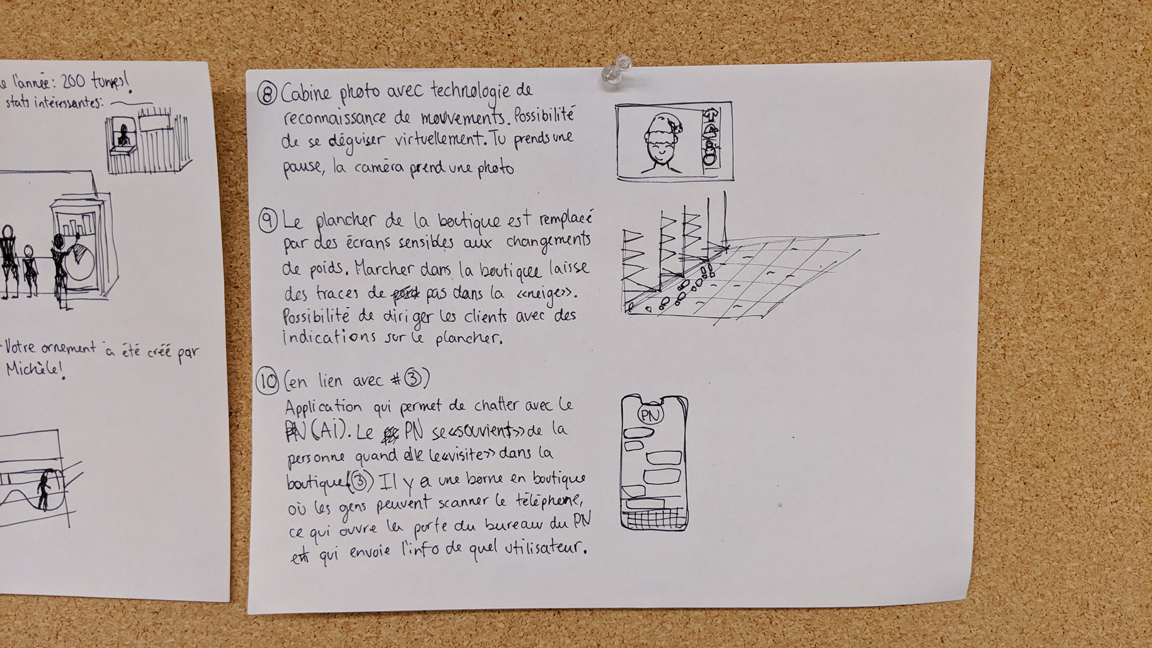 e l'année: 200 tonnes!
stats intéressantes:
Votre ornement a été créé par
Michèle!
⑧ Cabine photo avec technologie de
reconnaissance de mouvements. Possibilité
de se déguiser virtuellement. Tu prends une
pause, la caméra prend une photo
⑨ Le plancher de la boutique est remplacé
par des écrans sensibles aux changements
de poids. Marcher dans la boutique laisse
des traces de pas dans la «neige».
Possibilité de diriger les clients avec des
indications sur le plancher.
⑩ (en lien avec #③)
Application qui permet de chatter avec le
PN (AI). Le PN se «souvient» de la
personne quand elle le «visite» dans la
boutique(③) Il y a une borne en boutique
où les gens peuvent scanner le téléphone,
ce qui ouvre la porte du bureau du PN
et qui envoie l'info de quel utilisateur.
PN